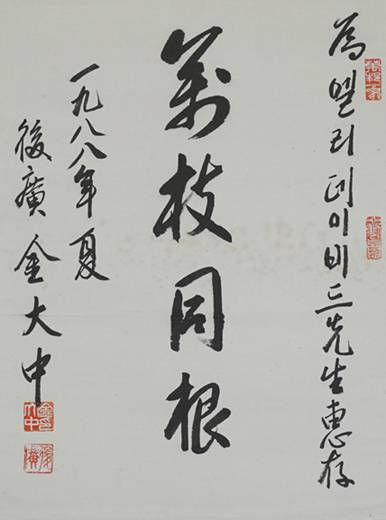 為 멜리데이비드先生惠存
萬枝同根
一九八八年夏
後廣 金大中
後廣